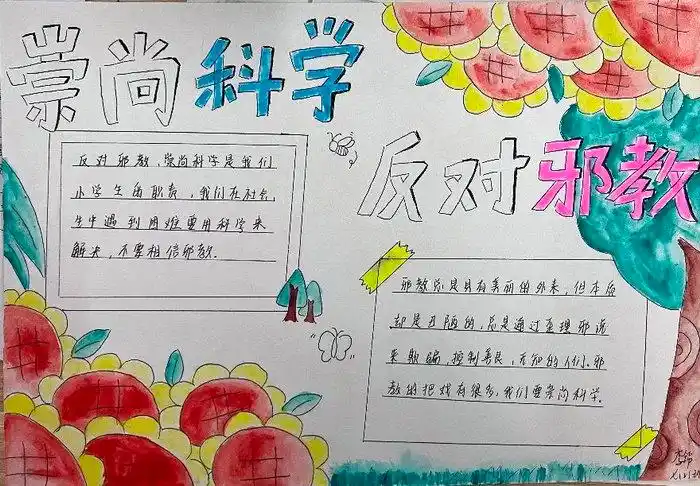 崇尚科学
反对邪教
反对邪教,崇尚科学是我们
小学生的职责,我们在社会
生中遇到困难要用科学来
解决,不要相信邪教.
邪教总是具有美丽的外表,但本后
却是丑陋的,总是通过歪理邪说
来欺骗 控制善良,无知的人们.邪
教的把戏有很多,我们要崇尚科学.